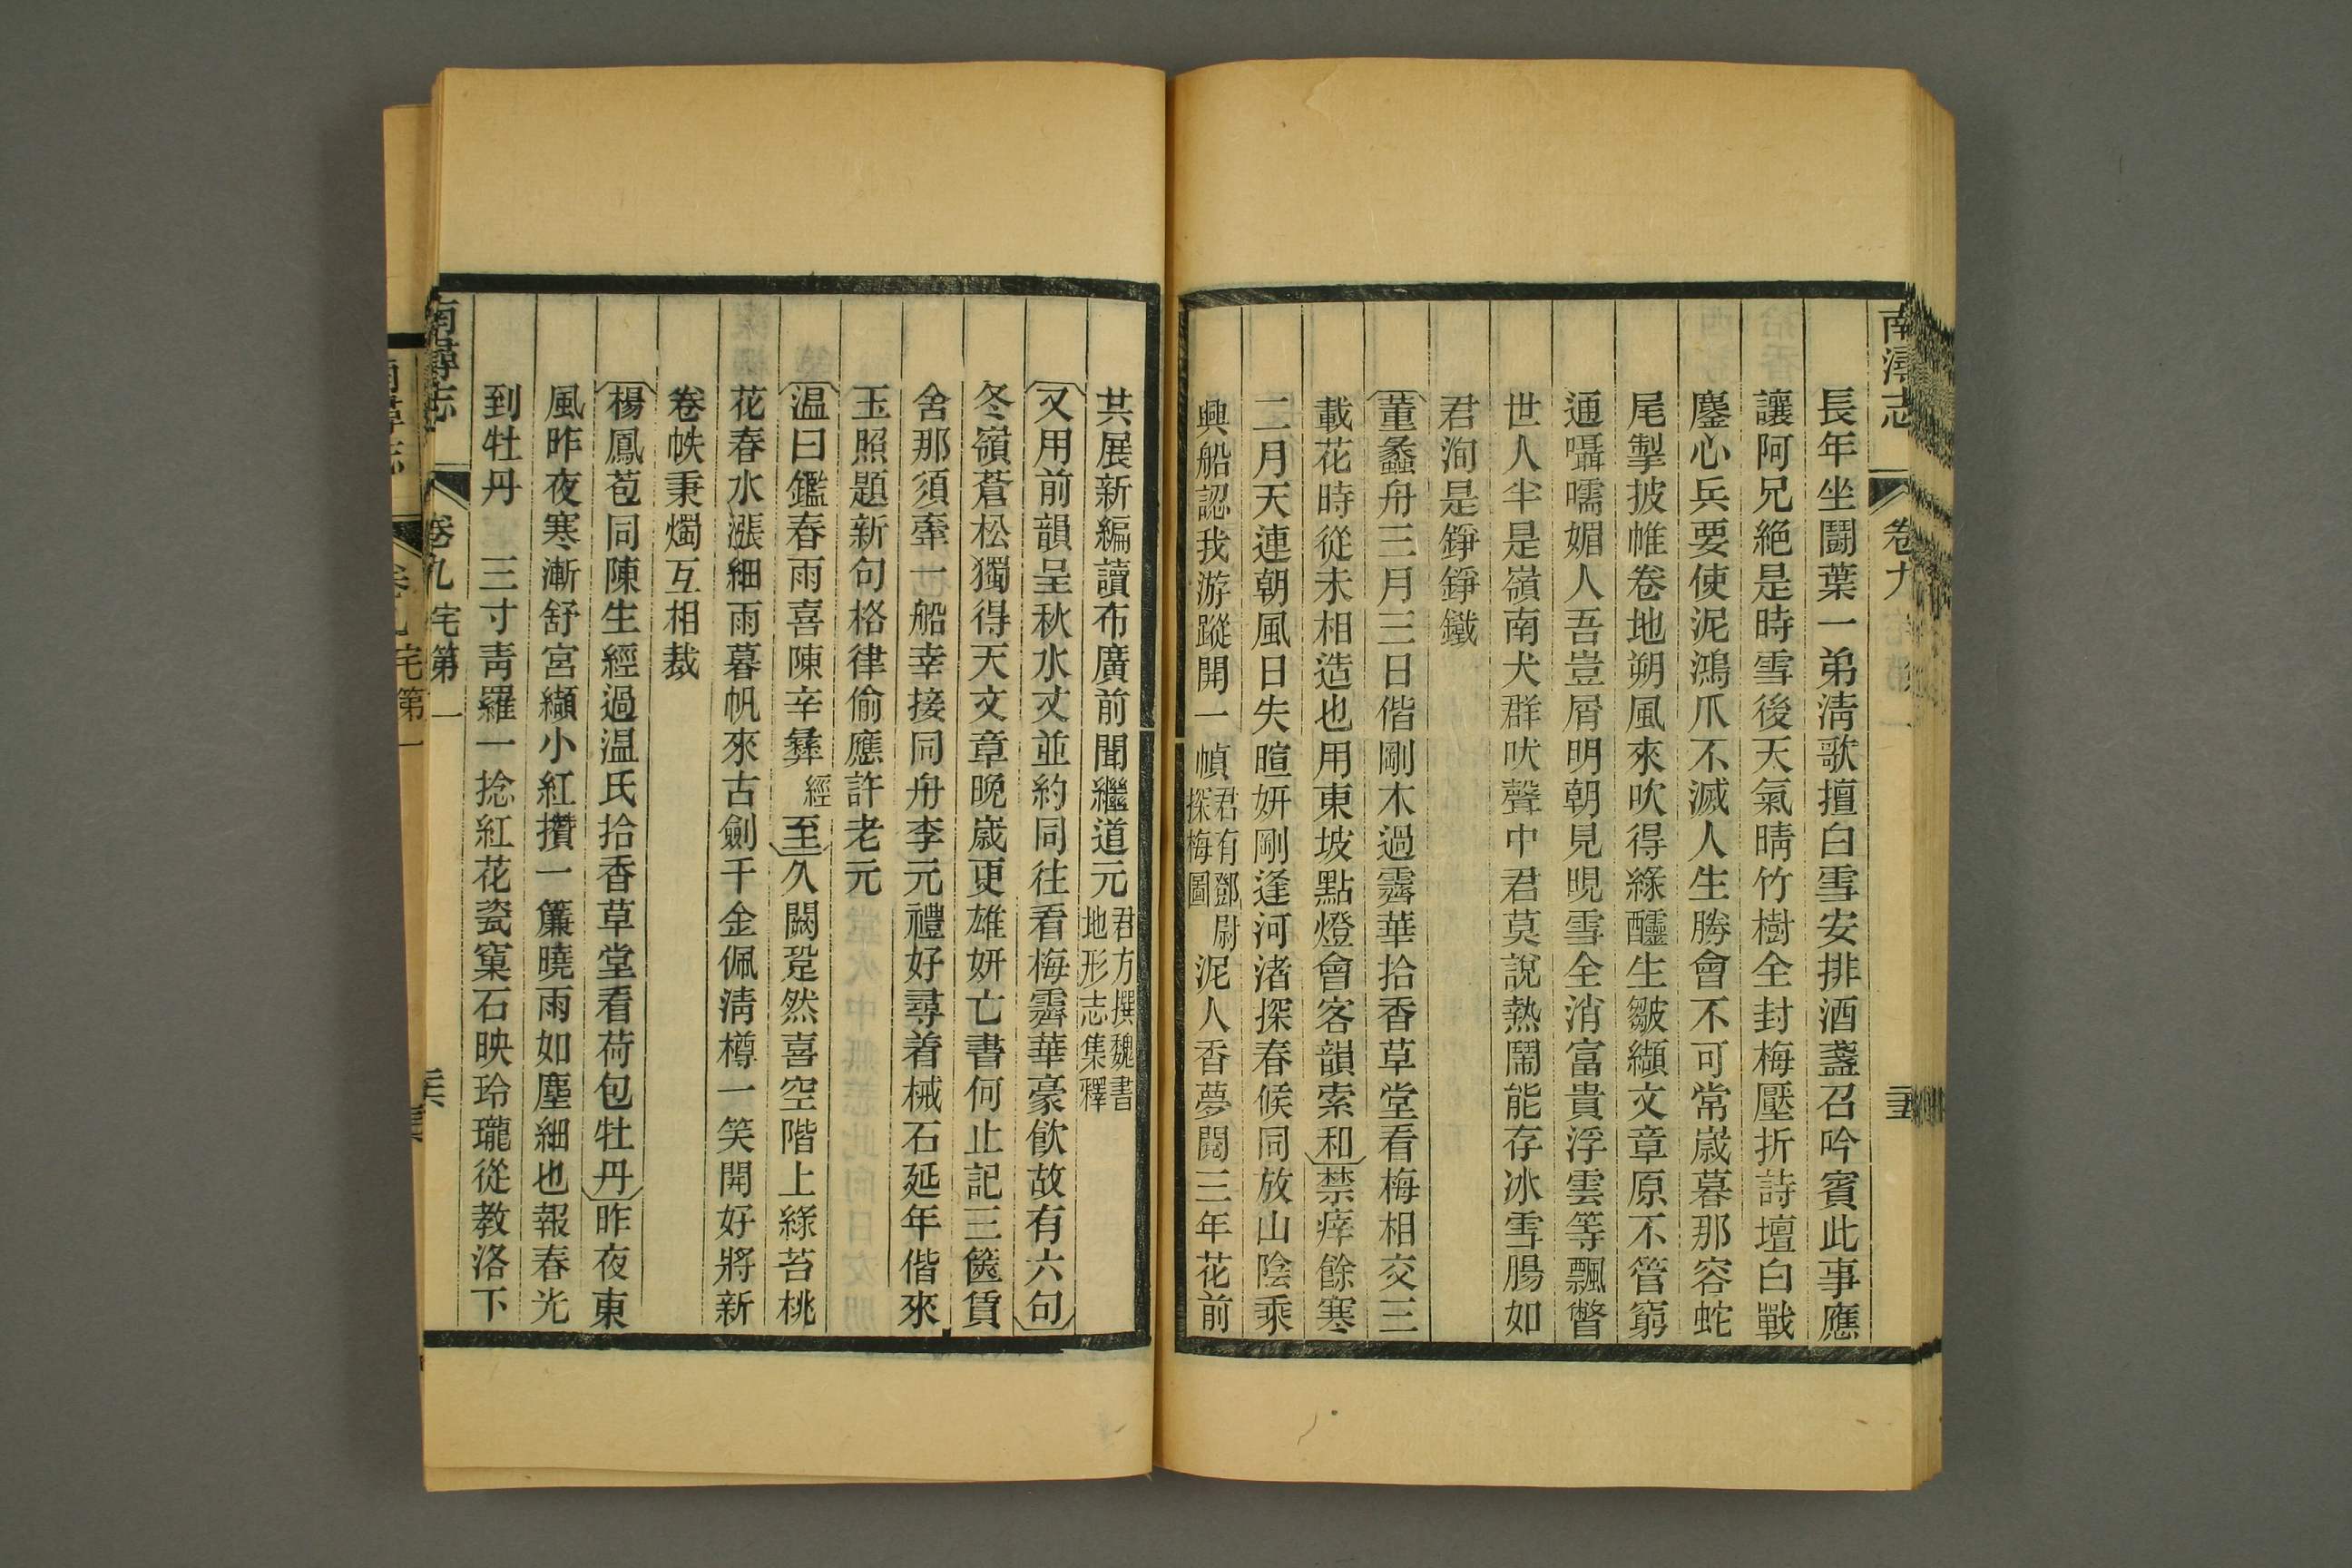 南潯志 卷九
長年坐鬭葉一弟淸歌擅白雪安排酒盞召吟賓此事應
讓阿兄絕是時雪後天氣晴竹樹全封梅壓折詩壇白戰
鏖心兵要使泥鴻爪不滅人生勝會不可常歲暮那容蛇
尾掣披帷卷地朔風來吹得綠醽生皺纈文章原不管窮
通囁嚅媚人吾豈屑明朝見晛雪全消富貴浮雲等飄瞥
世人半是嶺南犬群吠聲中君莫說熱鬧能存冰雪腸如
君洵是錚錚鐵
董蠡舟三月三日偕剛木過霽華拾香草堂看梅相交三
載花時從未相造也用東坡點燈會客韻索和禁痒餘寒
二月天連朝風日失暄妍剛逢河渚探春候同放山陰乘
興船認我游蹤開一幀君有鄧尉探梅圖泥人香夢閱三年花前
共展新編讀布廣前聞繼道元君方撰魏書地形志集釋
又用前韻呈秋水丈並約同往看梅霽華豪飮故有六句
冬嶺蒼松獨得天文章晚歲更雄妍亡書何止記三篋賃
舍那須牽一船幸接同舟李元禮好尋着械石延年偕來
玉照題新句格律偷應許老元
温曰鑑春雨喜陳辛彝經至久闕跫然喜空階上綠苔桃
花春水漲細雨暮帆來古劍千金佩淸樽一笑開好將新
卷帙秉燭互相裁
楊鳳苞同陳生經過温氏拾香草堂看荷包牡丹昨夜東
風昨夜寒漸舒宮纈小紅攢一簾曉雨如塵細也報春光
到牡丹 三寸靑羅一捻紅花瓷窠石映玲瓏從教洛下
南潯志 卷九 宅第一